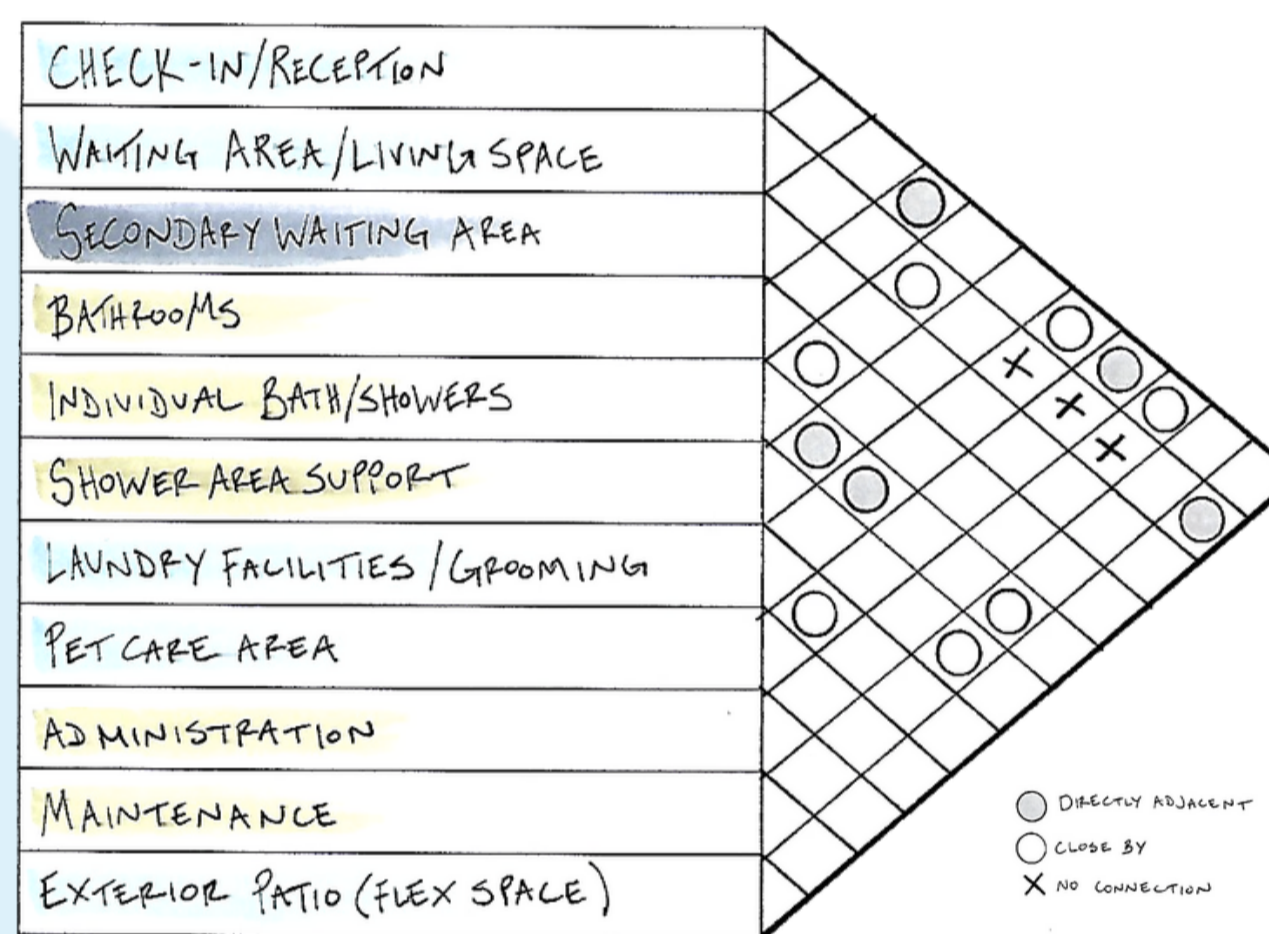 CHECK-IN/RECEPTION
WAITING AREA/LIVING SPACE
SECONDARY WAITING AREA
BATHROOMS
INDIVIDUAL BATH/SHOWERS
SHOWER AREA SUPPORT
LAUNDRY FACILITIES/GROOMING
PET CARE AREA
ADMINISTRATION
MAINTENANCE
EXTERIOR PATIO (FLEX SPACE)
DIRECTLY ADJACENT
CLOSE BY
NO CONNECTION